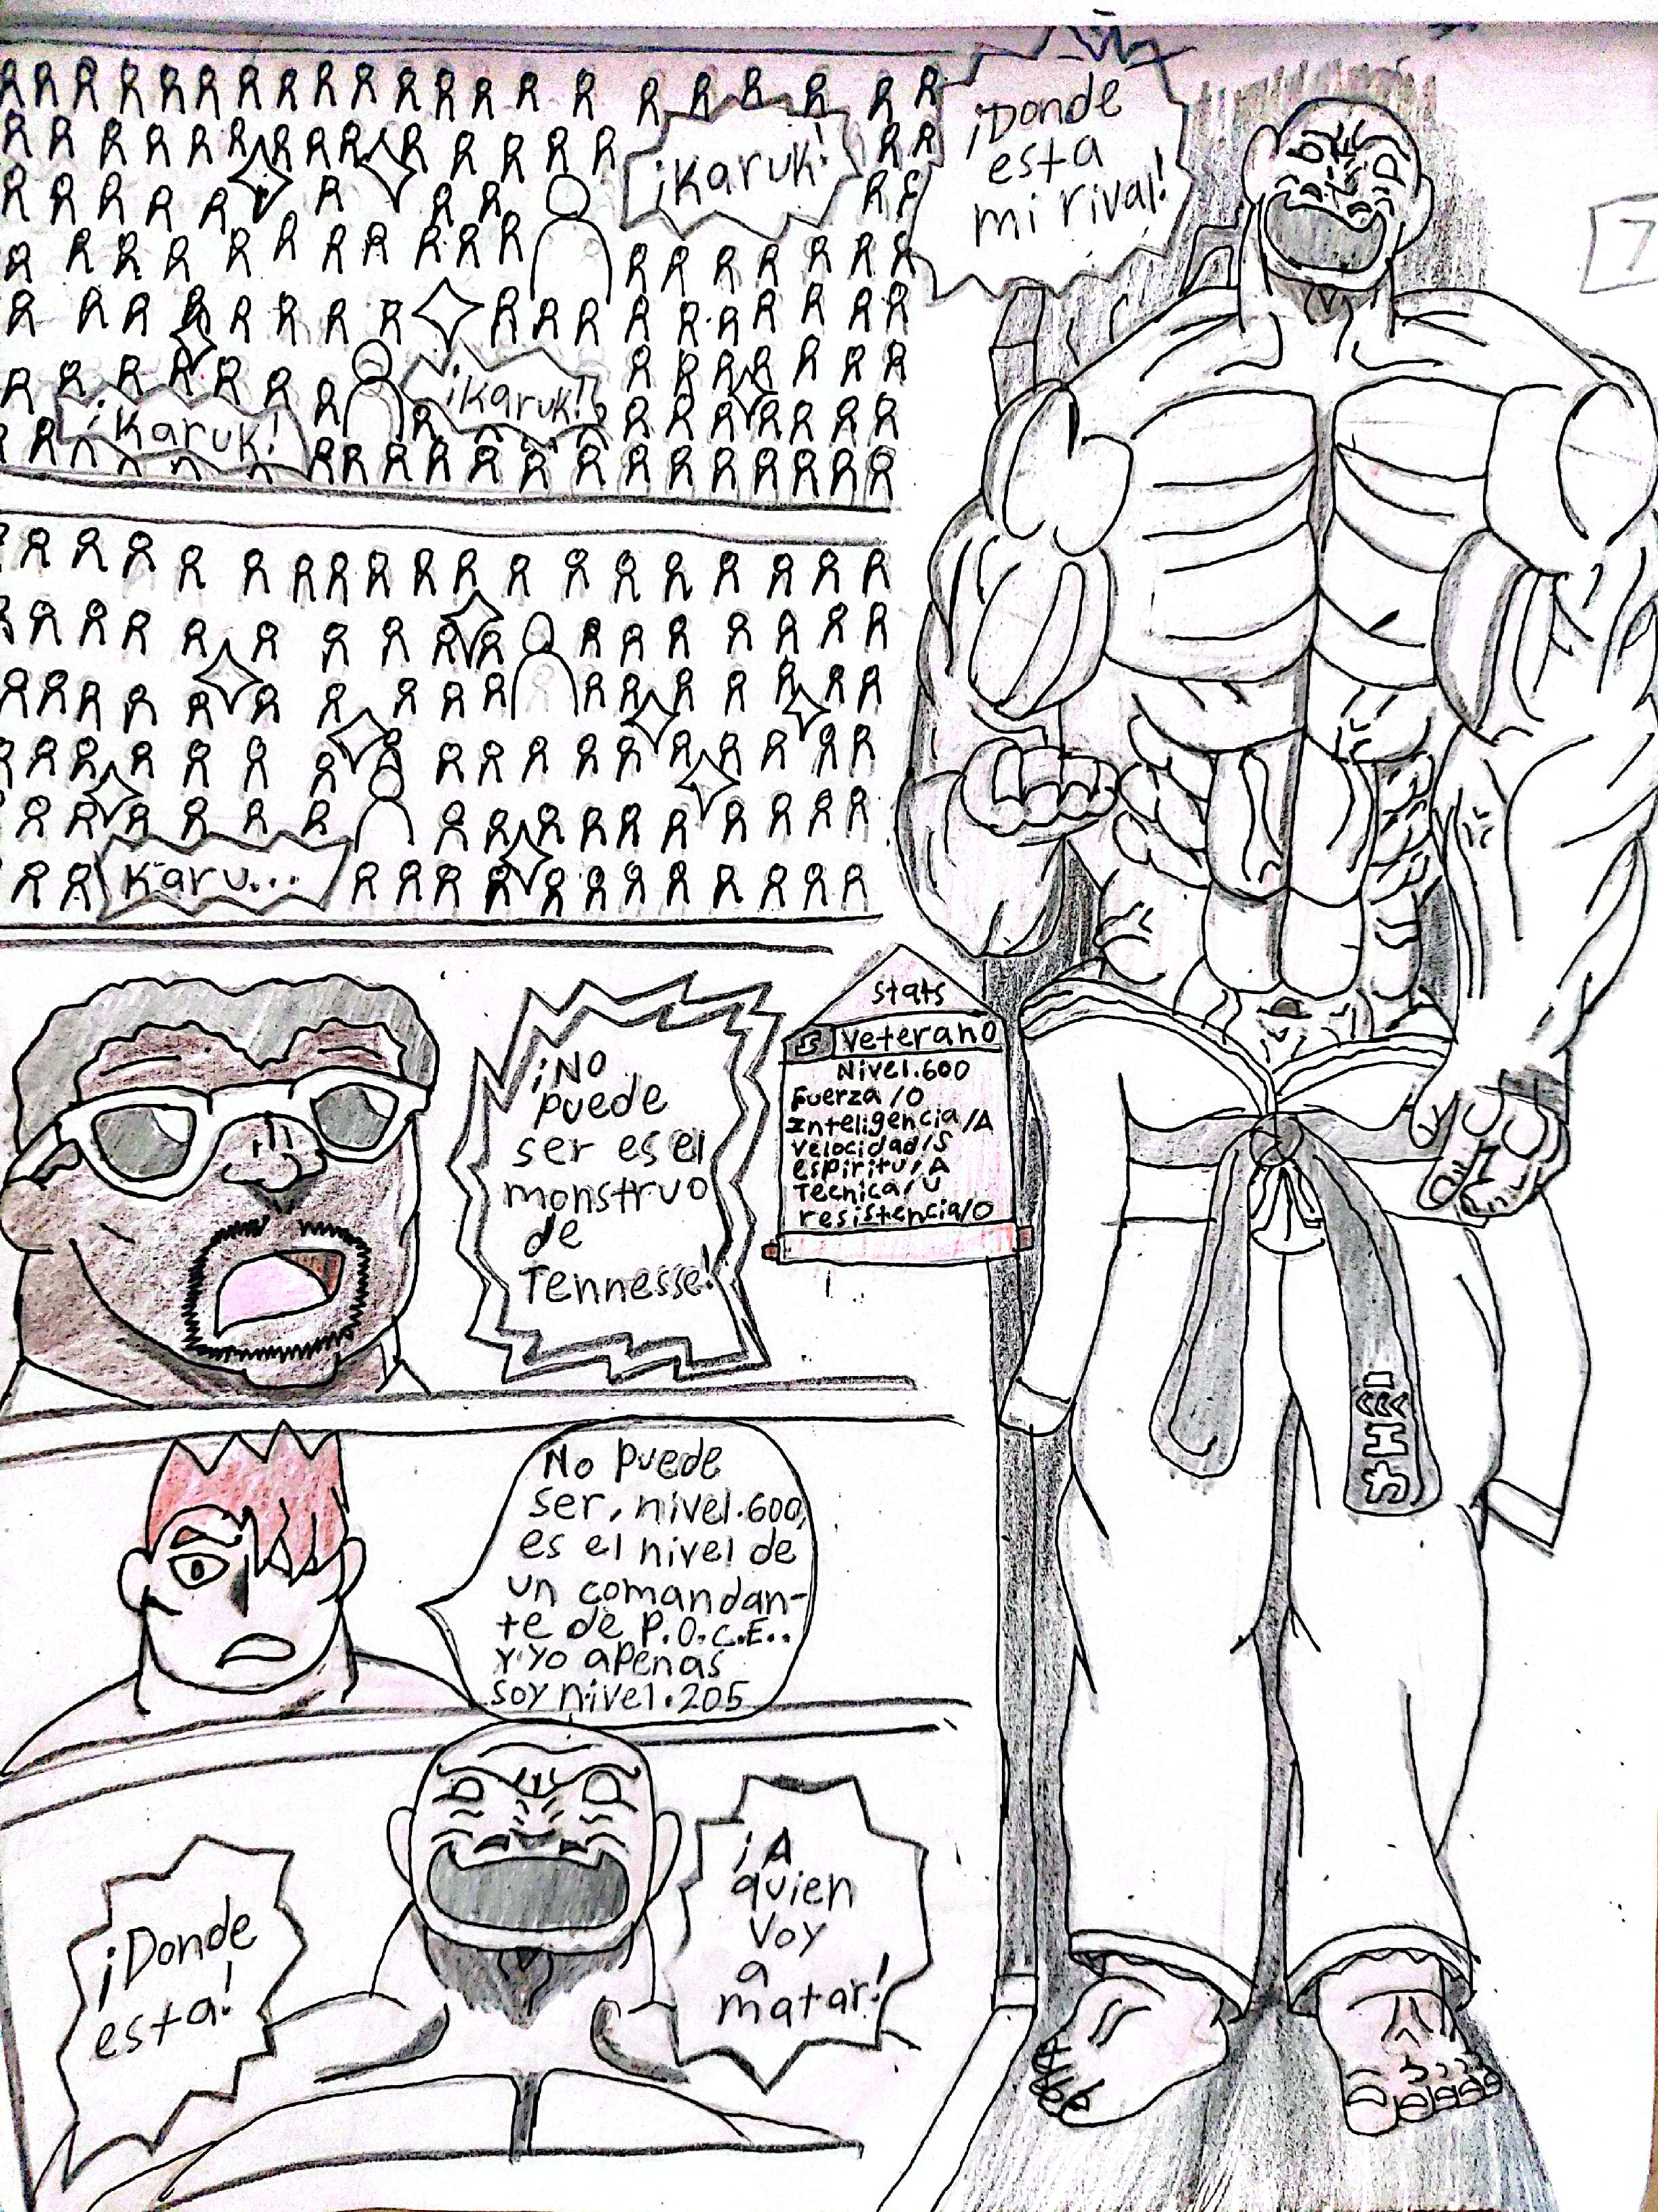 ¡Donde
esta
mi rival!
7
¡Karuk!
¡Karuk!
¡Karuk!
Karu...
¡No
puede
ser es el
monstruo
de
Tennesse!
Stats
S Veterano
Nivel.600
Fuerza/O
Inteligencia/A
Velocidad/S
espiritu/A
Tecnica/U
resistencia/O
No puede
ser, nivel.600,
es el nivel de
un comandan-
te de P.O.C.E..
Y yo apenas
soy nivel.205
¡Donde
esta!
¡A
quien
voy
a
matar!